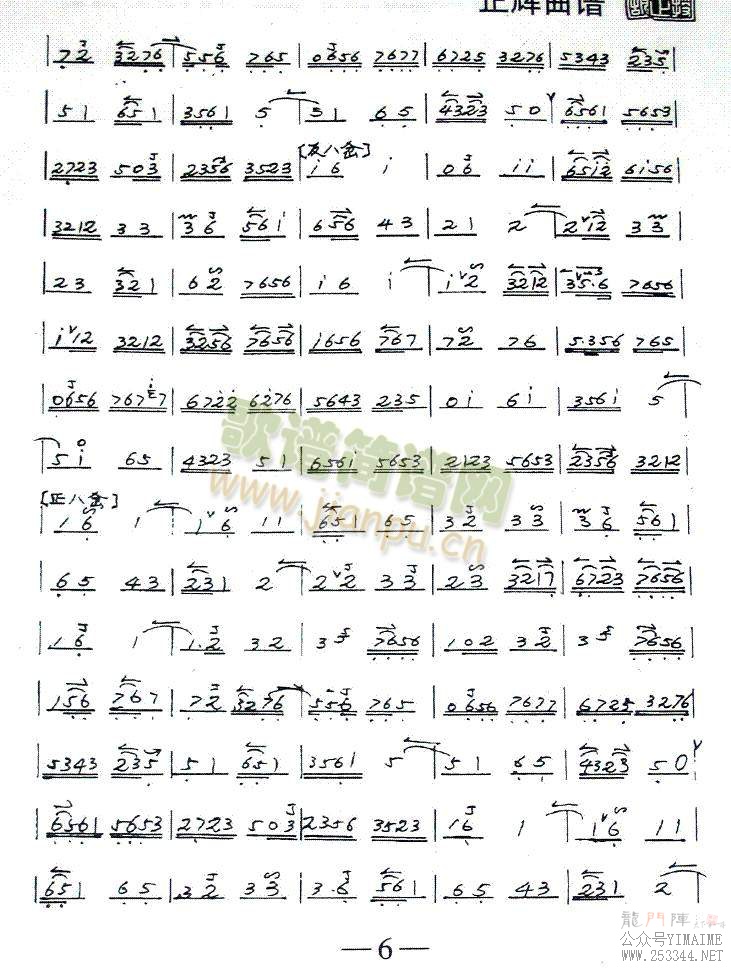 正辉曲谱
|7 2 3276|556 765|0656 7677|6725 3276|5343 235|
|51 651|3561 5|31 65|4323 50|6561 5653|
[反八岔]
|2723 503|2356 3523|i6 i|06 ii|65i2 6i56|
|3212 33|36 56i|656 43|21 2|212 33|
|23 321|62 7656|i6 i|i2 3212|35·6 7656|
|i12 3212|3256 7656|i656 767|72 76|5·356 765|
|0656 7677|672i 6276|5643 235|0i 6i|356i 5|
5i 65|4323 51|656i 5653|2123 5653|2356 3212|
[正八岔]
|16 1|16 11|651 65|32 33|36 561|
|65 43|231 2|22 33|23 3217|6723 7656|
|16 1|1·2 32|35 7656|102 32|35 7656|
|156 767|72 3276|556 765|0656 7677|6725 3276|
|5343 235|51 651|3561 5|51 65|4323 50|
|6561 5653|2723 503|2356 3523|16 1|16 11|
|651 65|32 33|3·6 561|65 43|231 2|
—6—
龍門陣
公众号YIMAIME
www.253344.NET
歌谱简谱网
www.jianpu.cn